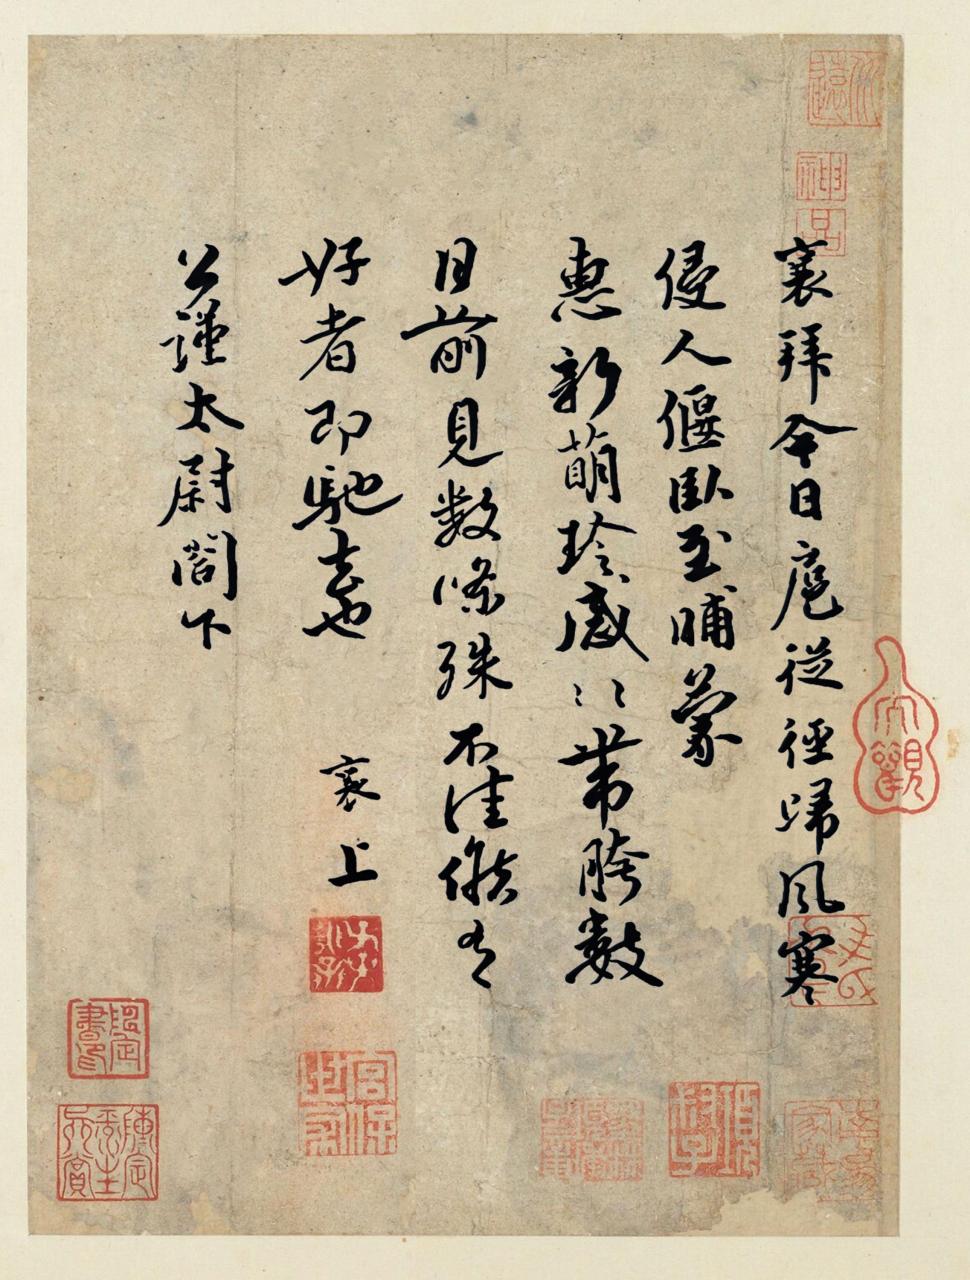 襄拜今日扈從徑歸風寒
侵人偃臥至晡蒙
惠新萌珍感珍感帶胯數
日前見數條殊不佳候有
好者即馳去也
襄上
公謹太尉閤下
神品
大觀